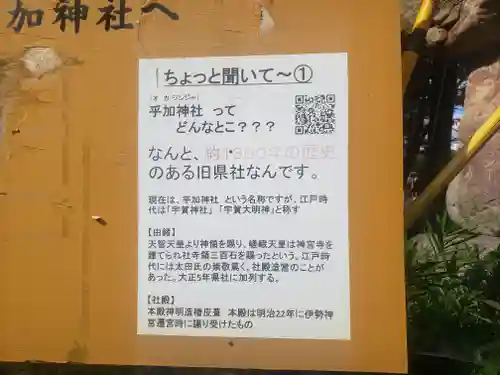 加神社へ
ちょっと聞いて～①
乎加神社 って
どんなとこ？？？
なんと、約1300年の歴史
のある旧県社なんです。
現在は、乎加神社 という名称ですが、江戸時
代は「宇賀神社」 「宇賀大明神」と称す
【由緒】
天智天皇より神領を賜り、嵯峨天皇は神宮寺を
建てられ社寺領三百石を賜ったという。江戸時
代には太田氏の崇敬篤く、社殿造営のことが
あった。大正5年県社に加列する。
【社殿】
本殿神明造檜皮葺 本殿は明治22年に伊勢神
宮遷宮時に譲り受けたもの